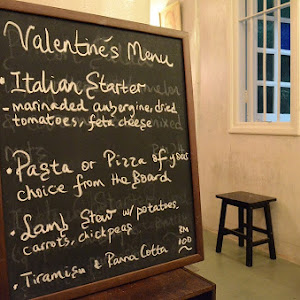 Valentine's Menu
• Italian Starter
- marinaded aubergine, dried
tomatoes, feta cheese
• Pasta or Pizza of your
choice from the Board
• Lamb Stew w/ potatoes,
carrots, chickpeas
RM
100
• Tiramisu & Panna Cotta